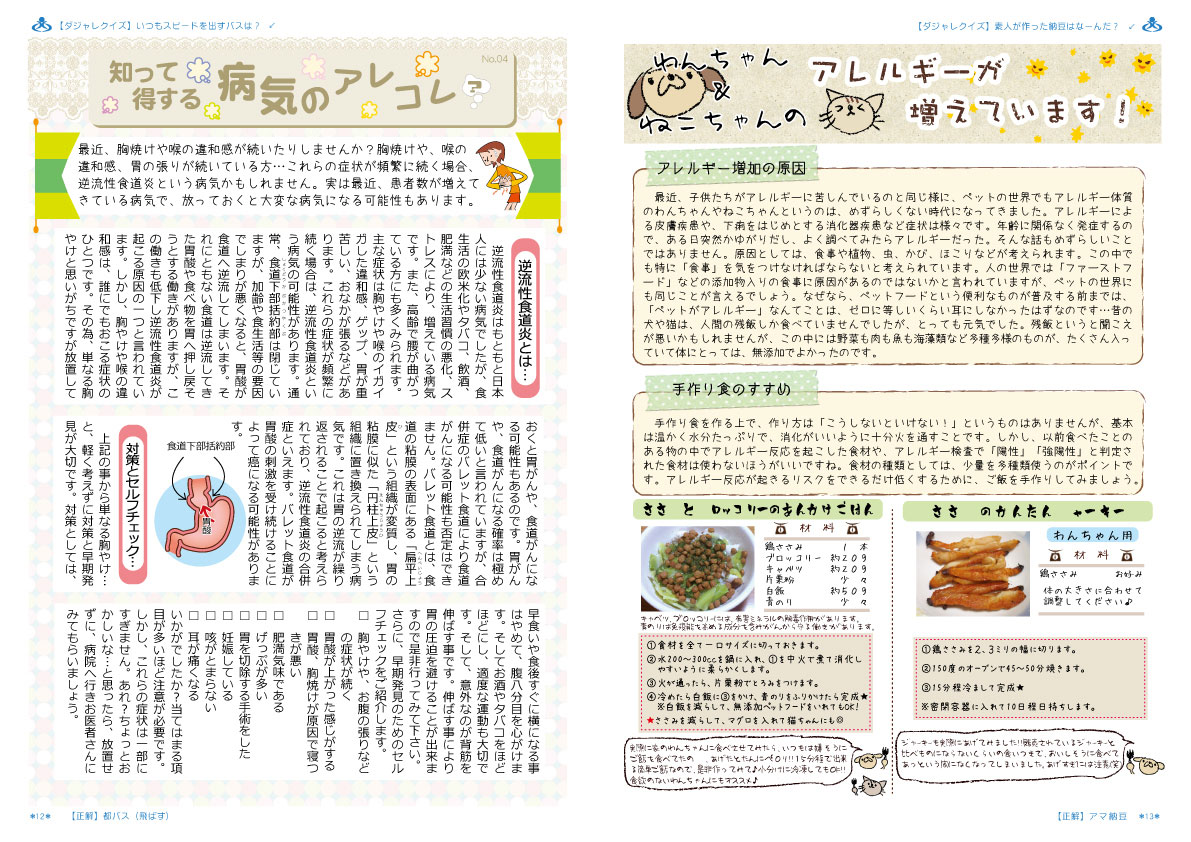 【ダジャレクイズ】いつもスピードを出すバスは？ ✓
No.04
知って
得する
病気の
アレ
コレ
?
最近、胸焼けや喉の違和感が続いたりしませんか？胸焼けや、喉の
違和感、胃の張りが続いている方…これらの症状が頻繁に続く場合、
逆流性食道炎という病気かもしれません。実は最近、患者数が増えて
きている病気で、放っておくと大変な病気になる可能性もあります。
逆流性食道炎とは…
逆流性食道炎はもともと日本
人には少ない病気でしたが、食
生活の欧米化やタバコ、飲酒、
肥満などの生活習慣の悪化、ス
トレスにより、増えている病気
です。また、高齢で腰が曲がっ
ている方にも多くみられます。
主な症状は胸やけや喉のイガイ
ガした違和感、ゲップ、胃が重
苦しい、おなかが張るなどがあ
ります。これらの症状が頻繁に
続く場合は、逆流性食道炎とい
う病気の可能性があります。通
常、食道下部括約部は閉じてい
ますが、加齢や食生活等の要因
でしまりが悪くなると、胃酸が
食道へ逆流してしまいます。そ
れにともない食道は逆流してき
た胃酸や食べ物を胃へ押し戻そ
うとする働きがありますが、こ
の働きも低下し逆流性食道炎が
起こる原因の一つと言われてい
ます。しかし、胸やけや喉の違
和感は、誰にでもおこる症状の
ひとつです。その為、単なる胸
やけと思いがちですが放置して
おくと胃がんや、食道がんにな
る可能性もあるのです。胃がん
や、食道がんになる確率は極め
て低いと言われていますが、合
併症のバレット食道により食道
がんになる可能性も否定はでき
ません。バレット食道とは、食
道の粘膜の表面にある「扁平上
皮」という組織が変質し、胃の
粘膜に似た「円柱上皮」という
組織に置き換えられてしまう病
気です。これは胃の逆流が繰り
返されることで起こると考えら
れており、逆流性食道炎の合併
症といえます。バレット食道が
胃酸の刺激を受け続けることに
よって癌になる可能性がありま
食道下部括約部
胃酸
対策とセルフチェック…
上記の事から単なる胸やけ…
と、軽く考えずに対策と早期発
見が大切です。対策としては、
早食いや食後すぐに横になる事
はやめて、腹八分目を心がけま
す。そしてお酒やタバコをほど
ほどにし、適度な運動も大切で
す。そして、意外なのが背筋を
伸ばす事です。伸ばす事により
胃の圧迫を避けることが出来ま
すので是非行ってみて下さい。
さらに、早期発見のためのセル
フチェックをご紹介します。
□ 胸やけや、お腹の張りなど
の症状が続く
□ 胃酸が上がった感じがする
□ 胃酸、胸焼けが原因で寝つ
きが悪い
□ 肥満気味である
□ げっぷが多い
□ 胃を切除する手術をした
□ 妊娠している
□ 咳がとまらない
□ 耳が痛くなる
いかがでしたか？当てはまる項
目が多いほど注意が必要です。
しかし、これらの症状は一部に
すぎません。あれ？ちょっとお
かしいな…と思ったら、放置せ
ずに、病院へ行きお医者さんに
みてもらいましょう。
*12* 【正解】都バス（飛ばす）
【ダジャレクイズ】素人が作った納豆はなーんだ？ ✓
わんちゃん
&
ねこちゃんの
アレルギーが
増えています！
アレルギー増加の原因
最近、子供たちがアレルギーに苦しんでいるのと同じ様に、ペットの世界でもアレルギー体質
のわんちゃんやねこちゃんというのは、めずらしくない時代になってきました。アレルギーによ
る皮膚疾患や、下痢をはじめとする消化器疾患など症状は様々です。年齢に関係なく発症するの
で、ある日突然かゆがりだし、よく調べてみたらアレルギーだった。そんな話もめずらしいこと
ではありません。原因としては、食事や植物、虫、かび、ほこりなどが考えられます。この中で
も特に「食事」を気をつけなければならないと考えられています。人の世界では「ファーストフ
ード」などの添加物入りの食事に原因があるのではないかと言われていますが、ペットの世界に
も同じことが言えるでしょう。なぜなら、ペットフードという便利なものが普及する前までは、
「ペットがアレルギー」なんてことは、ゼロに等しいくらい耳にしなかったはずなのです…昔の
犬や猫は、人間の残飯しか食べていませんでしたが、とっても元気でした。残飯というと聞こえ
が悪いかもしれませんが、この中には野菜も肉も魚も海藻類など多種多様のものが、たくさん入っ
ていて体にとっては、無添加でよかったのです。
手作り食のすすめ
手作り食を作る上で、作り方は「こうしないといけない！」というものはありませんが、基本
は温かく水分たっぷりで、消化がいいように十分火を通すことです。しかし、以前食べたことの
ある物の中でアレルギー反応を起こした食材や、アレルギー検査で「陽性」「強陽性」と判定さ
れた食材は使わないほうがいいですね。食材の種類としては、少量を多種類使うのがポイントで
す。アレルギー反応が起きるリスクをできるだけ低くするために、ご飯を手作りしてみましょう。
ささ と ロッコリーのあんかけごはん
材 料
鶏ささみ 1 本
ブロッコリー 約20g
キャベツ 約20g
片栗粉 少 々
白飯 約50g
青のり 少 々
キャベツ、ブロッコリーには、有害ミネラルの解毒作用があります。
青のりは免疫能を高める成分を含みがんから守る働きがあります。
①食材を全て一口サイズに切っておきます。
②水200〜300ccを鍋に入れ、①を中火で煮て消化し
やすいように柔らかくします。
③火が通ったら、片栗粉でとろみをつけます。
④冷めたら白飯に③をかけ、青のりをふりかけたら完成★
※白飯を減らして、無添加ペットフードをいれてもOK!
★ささみを減らして、マグロを入れて猫ちゃんにも◎
実際に家のわんちゃんに食べさせてみたら、いつもは嫌そうに
ご飯を食べてたの 、あげたとたんにペロリ!!15分程で出来
る簡単ご飯なので、是非作ってみて♪小分けに冷凍してもOK!!
食欲のないわんちゃんにもオススメ♪
ささ のかんたん ャーキー
わんちゃん用
材 料
鶏ささみ お好み
体の大きさに合わせて
調整してください♪
①鶏ささみを2、3ミリの幅に切ります。
②150度のオーブンで45〜50分焼きます。
③15分程冷まして完成★
※密閉容器に入れて10日程日持ちします。
ジャーキーを実際にあげてみました!!販売されているジャーキーと
比べものにならないくらいの食いつきで、おいしそうに食べて
あっという間になくなってしまいました。あげすぎには注意(笑)
【正解】アマ納豆 *13*